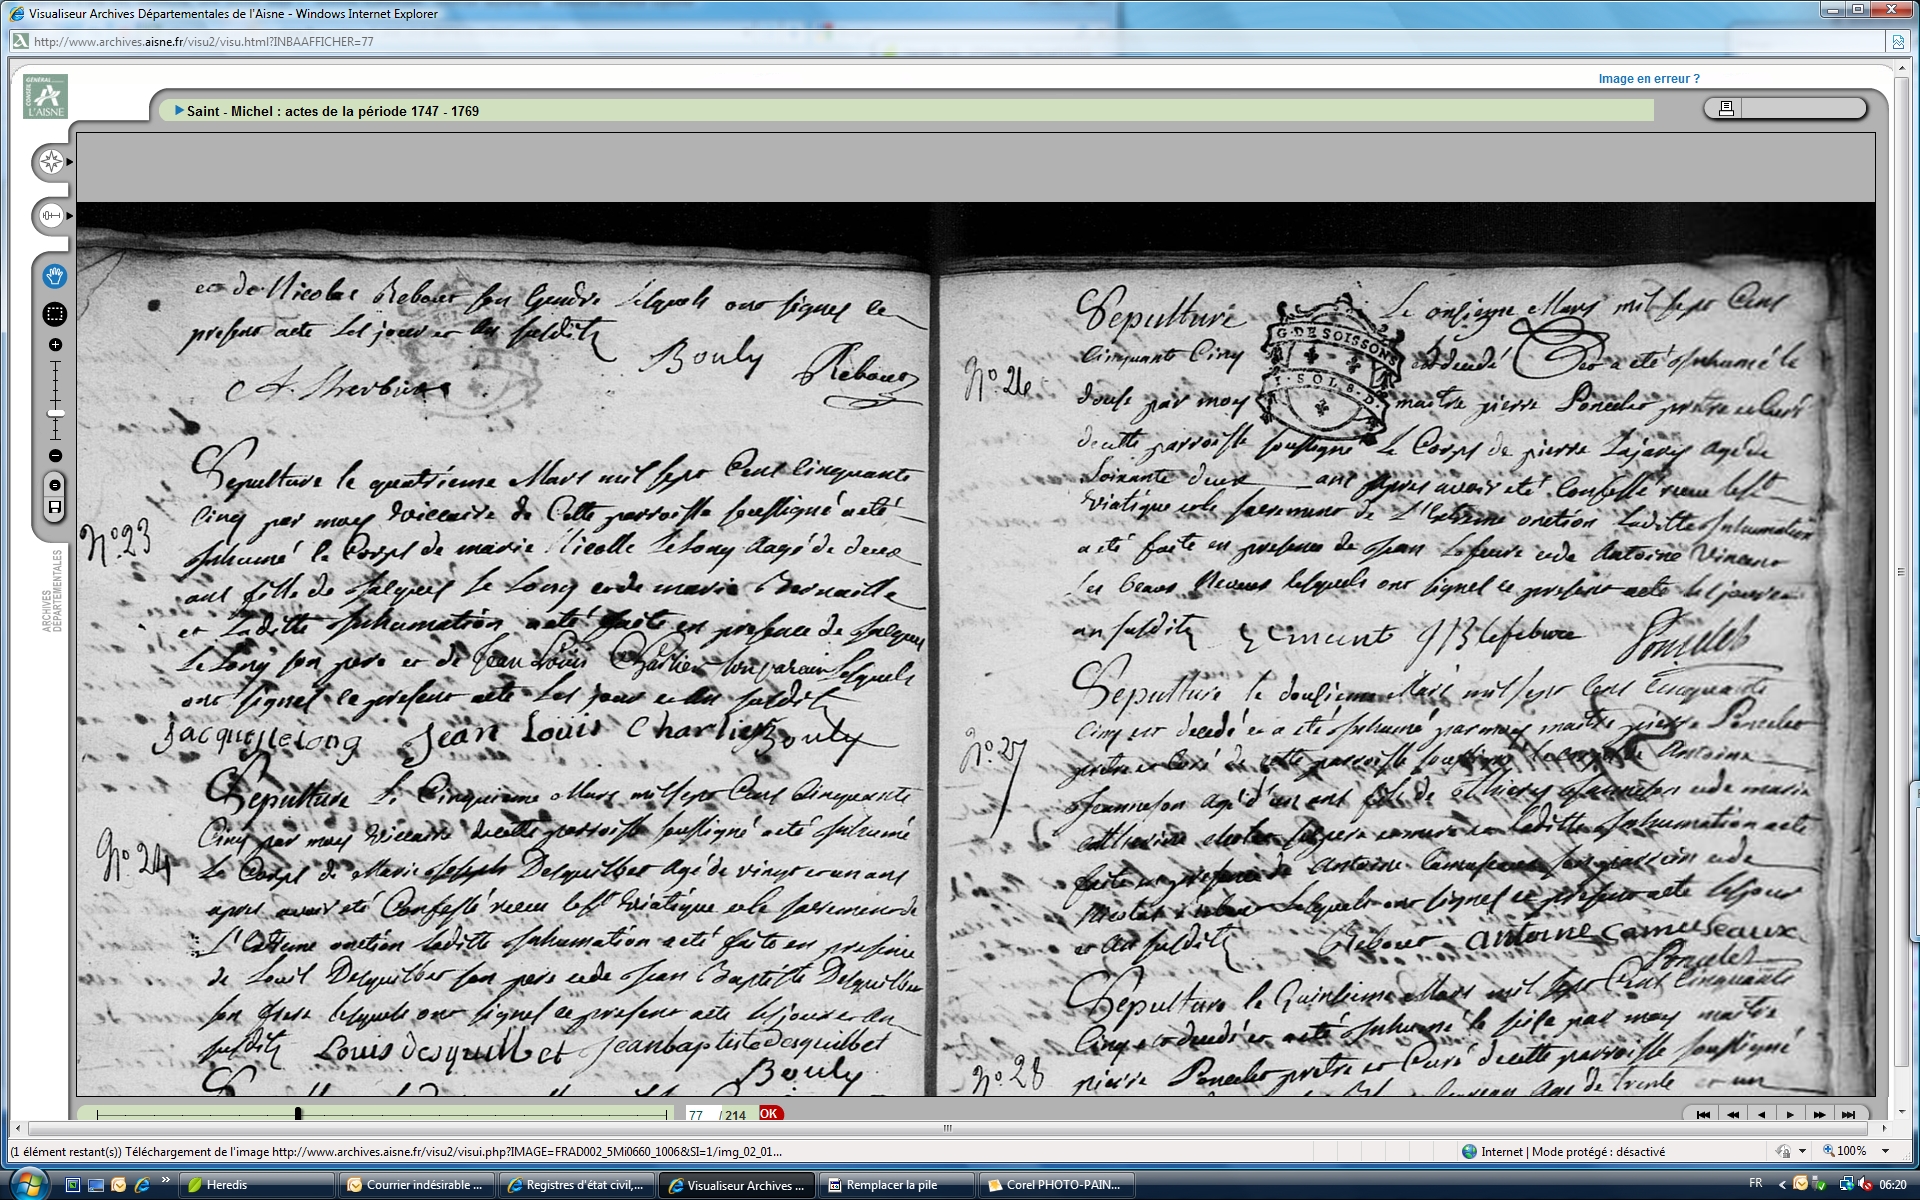 Visualiseur Archives Départementales de l'Aisne - Windows Internet Explorer
http://www.archives.aisne.fr/visu2/visu.html?INBAAFFICHER=77
Image en erreur ?
CONSEIL GÉNÉRAL L'AISNE
Saint - Michel : actes de la période 1747 - 1769
ARCHIVES DÉPARTEMENTALES
et de Nicolas Rebour son Gendre lesquels ont signes le
present acte les jour et an susdits
Bouly Rebour
N° 23
Sepulture le quatrieme Mars mil sept Cens Cinquante
Cinq par moy viccaire de Cette parroisse soussigné a eté
Inhumé le Corps de marie Nicolle Lelong aagé de deux
ans fille de Jacques Le Long et de marie
et Laditte Inhumation a eté faite en presence de Jacques
Le Long son pere et de Jean Louis Charlier son parain Lesquels
ont signes le present acte Les jour et an susdits
Jacque lelong Jean Louis Charlier Bouly
N° 24
Sepulture Le Cinquieme Mars mil sept Cens Cinquante
Cinq par moy viccaire de cette parroisse soussigné a eté Inhumé
Le Corps de Marie Joseph Desquilbet agé de vingt et un ans
apres avoir eté Confessé recu le st Viatique et le sacrement de
L'Extreme onction Laditte Inhumation a eté faite en presence
de Louis Desquilbet son pere et de Jean Baptiste Desquilbet
son frere lesquels ont signes le present acte les jour et an
susdits Louis desquillbet Jeanbaptiste desquilbet
Bouly
N° 26
Sepulture Le onsieme Mars mil sept Cens
Cinquante Cinq est decedé et a eté Inhumé le
douse par moy maitre pierre Poncelet pretre et Curé
de cette parroisse soussigné Le Corps de pierre agé de
Soixante deux ans apres avoir eté Confessé recu le st
Viatique et le sacrement de L'Extreme onction Laditte Inhumation
a eté faite en presence de Jean Lefebvre et de Antoine Vincent
Les beaux lesquels ont signes le present acte les jour et
an susdits lefebvre Poncelet
G. DE SOISSONS
SOLS
N° 27
Sepulture le dousieme Mars mil sept Cens Cinquante
Cinq est decedé et a eté Inhumé par moy maitre pierre Poncelet
pretre et Curé de cette parroisse soussigné le corps de Antoine
Jeanneson agé d'un ant fils de Jeanneson et de marie
catherine ses pere et mere et Laditte Inhumation a eté
faite en presence de Antoine Camuseaux son parrain et de
Nicolas Rebour Lesquels ont signes le present acte les jour
et an susdits Rebour antoine camuseaux
Poncelet
N° 28
Sepulture le Quinsieme Mars mil sept Cens Cinquante
Cinq est decedé et a eté Inhumé le seise par moy maitre
pierre Poncelet pretre et Curé de cette parroisse soussigné
agé de trente et un
77 / 214 OK
(1 élément restant(s)) Téléchargement de l'image http://www.archives.aisne.fr/visu2/visui.php?IMAGE=FRAD002_5Mi0660_1006&SI=1/img_02_01...
Internet | Mode protégé : désactivé
100%
Heredis
Courrier indésirable ...
Registres d'état civil,...
Visualiseur Archives ...
Remplacer la pile
Corel PHOTO-PAIN...
FR
06:20